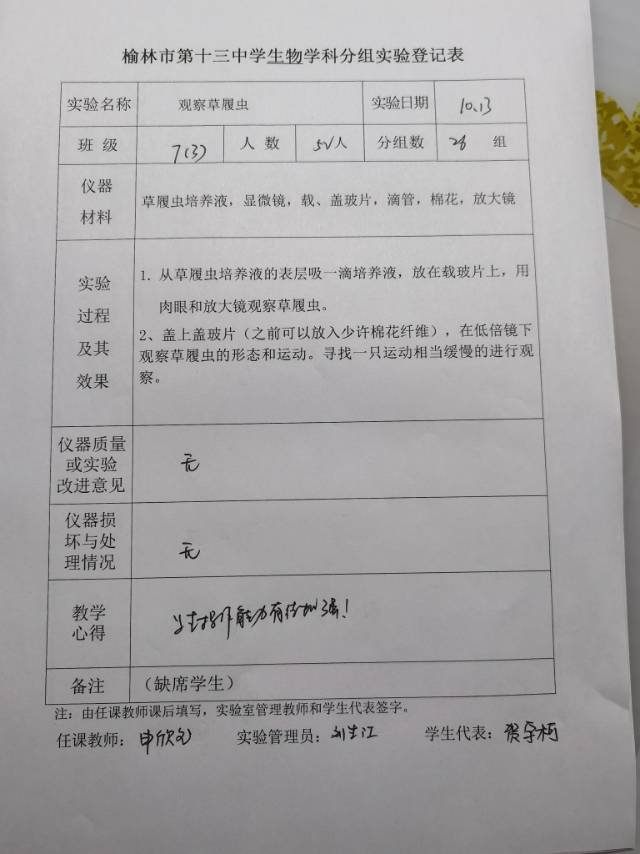 榆林市第十三中学生物学科分组实验登记表
实验名称 观察草履虫 实验日期 10.13
班 级 7(3) 人 数 52人 分组数 26 组
仪器
材料
草履虫培养液，显微镜，载、盖玻片，滴管，棉花，放大镜
实验
过程
及其
效果
1. 从草履虫培养液的表层吸一滴培养液，放在载玻片上，用
肉眼和放大镜观察草履虫。
2、盖上盖玻片（之前可以放入少许棉花纤维），在低倍镜下
观察草履虫的形态和运动。寻找一只运动相当缓慢的进行观
察。
仪器质量
或实验
改进意见
无
仪器损
坏与处
理情况
无
教学
心得
学生操作能力有待加强！
备注 （缺席学生）
注：由任课教师课后填写，实验室管理教师和学生代表签字。
任课教师： 申欣 实验管理员： 刘生江 学生代表： 贺